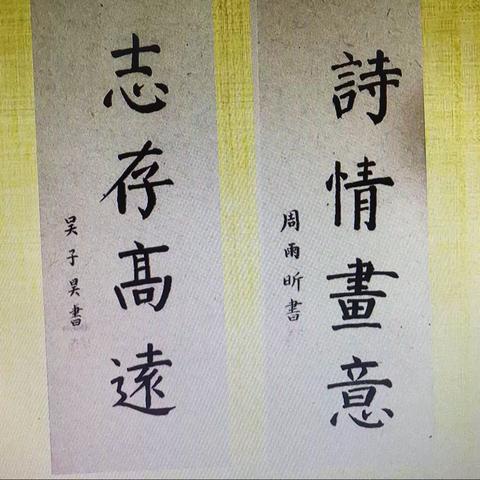 詩情畫意
周雨昕書
志存高遠
吴子昊書